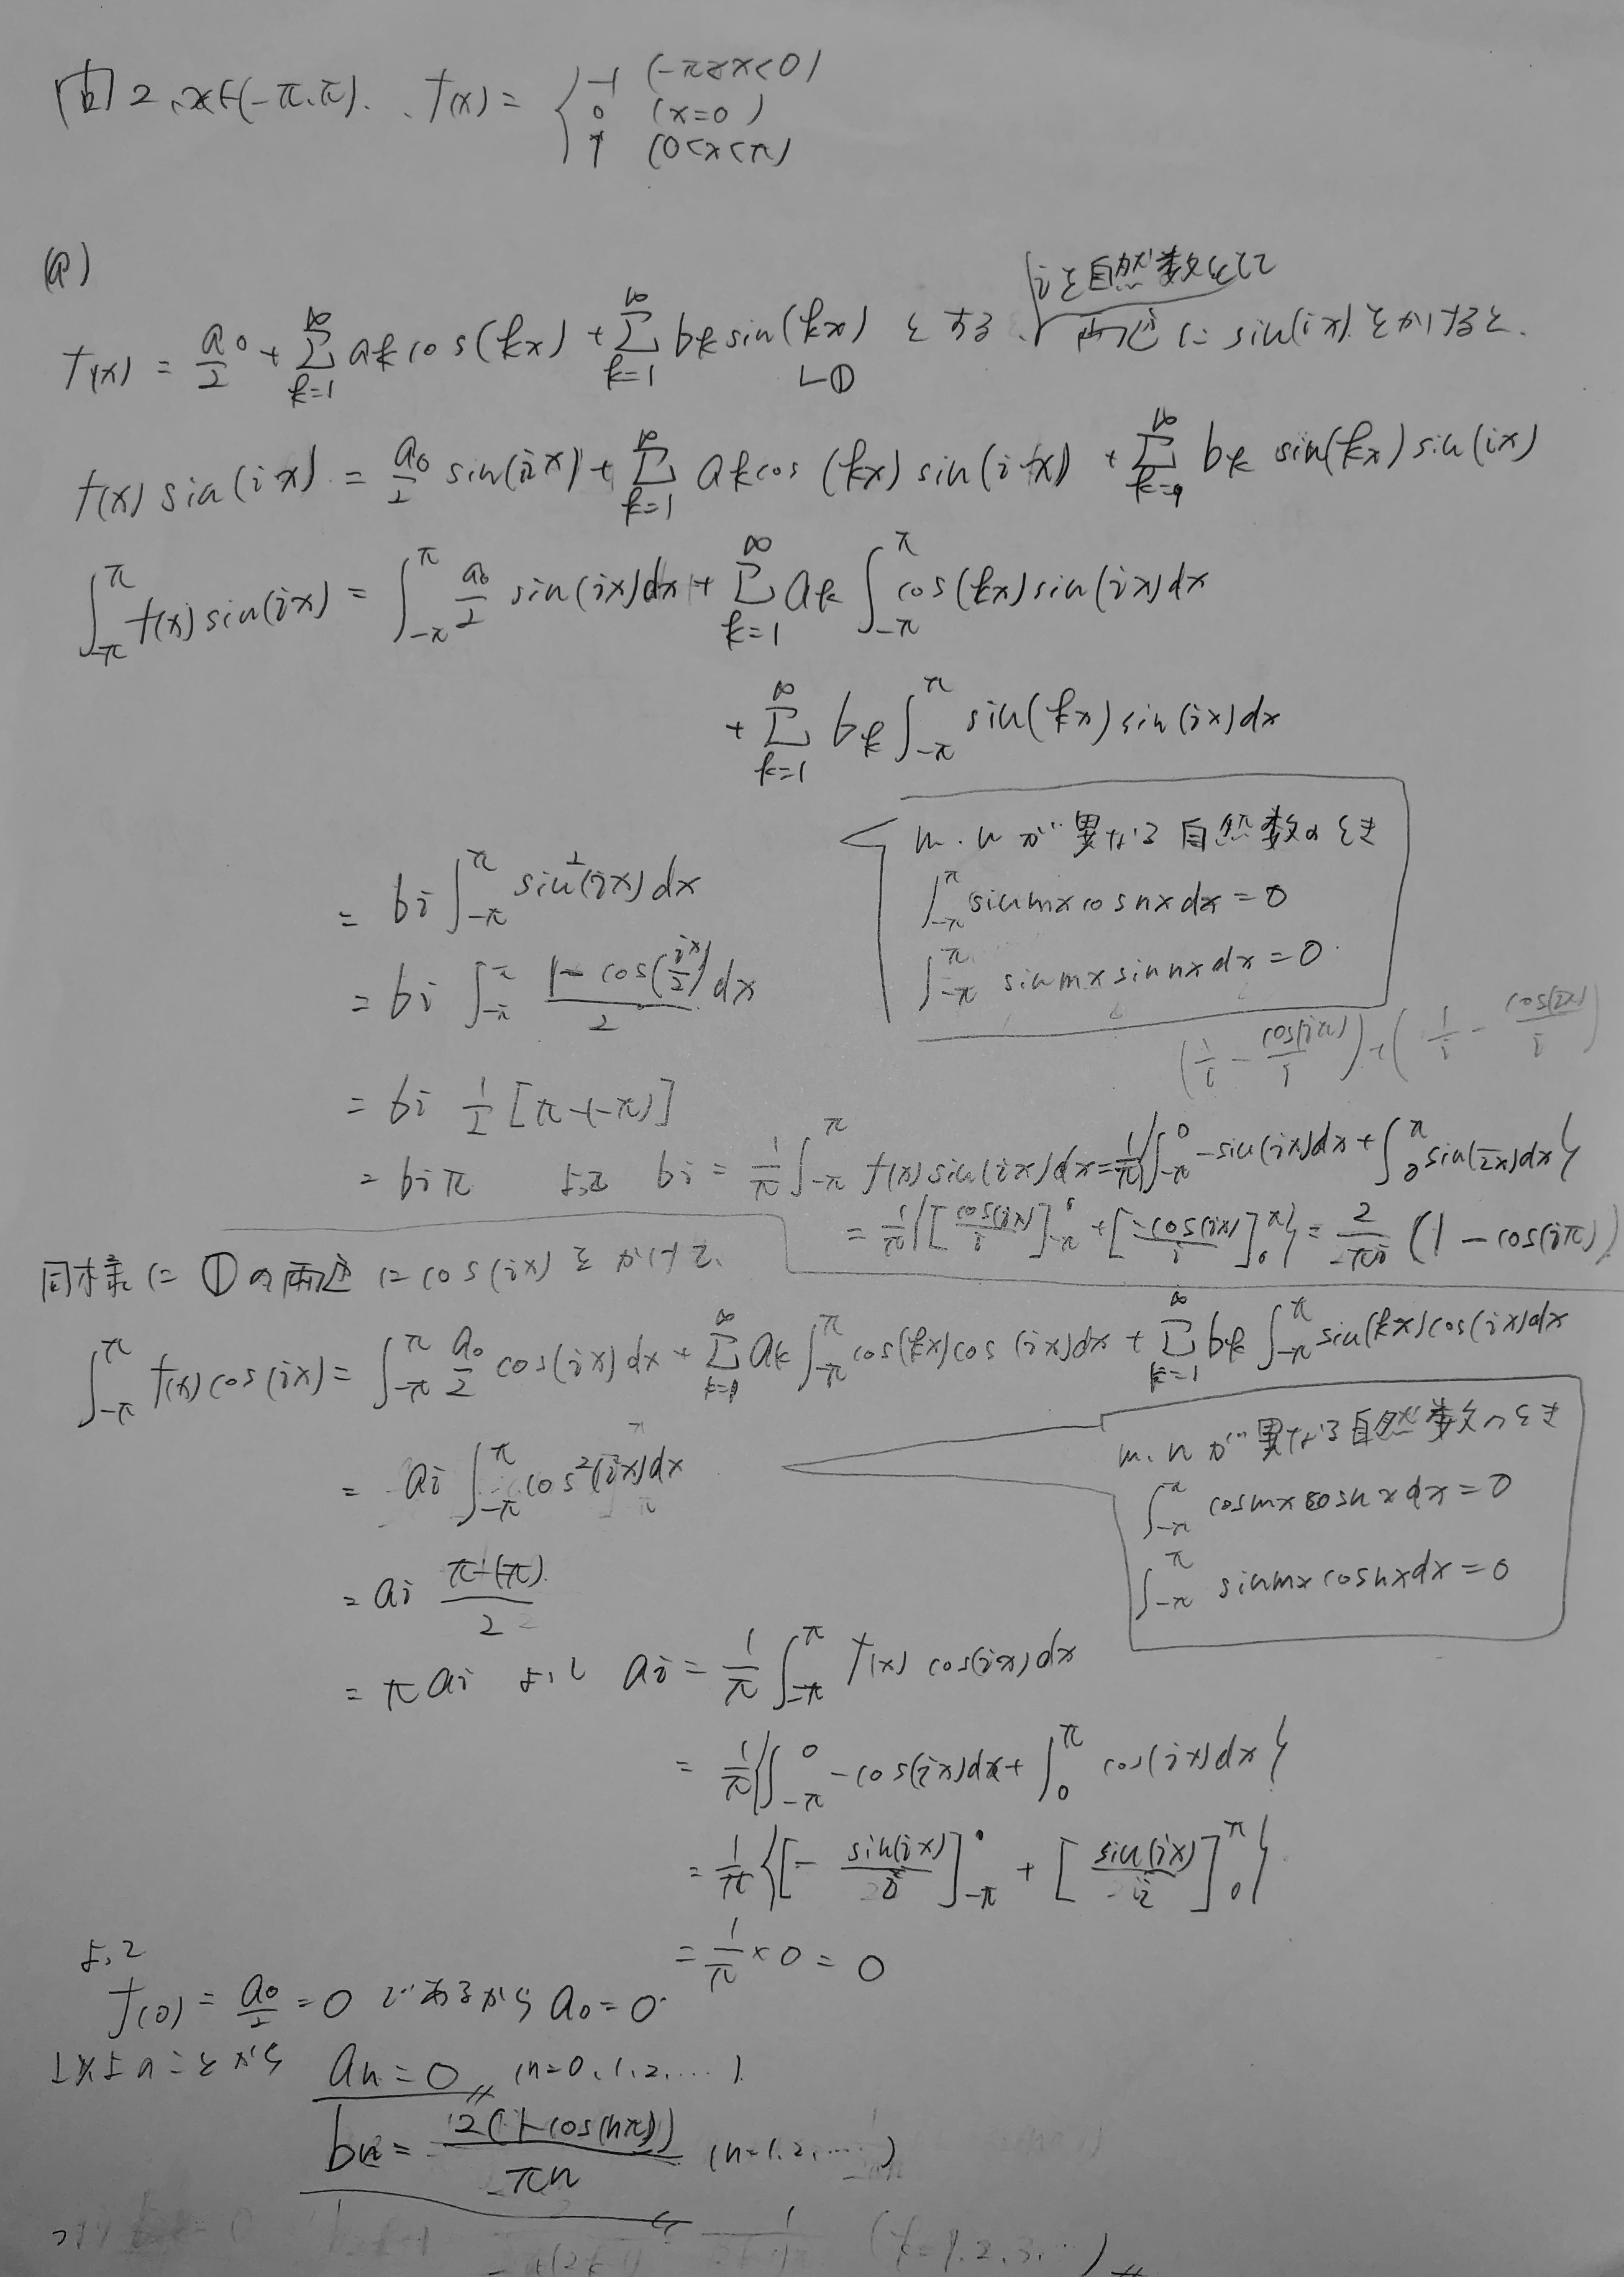 問2、x∈(-π、π)、f(x) = { -1 (-π<x<0)
0 (x=0)
1 (0<x<π)
(a)
iを自然数として
f(x) = a0/2 + Σ[k=1,∞] ak cos(kx) + Σ[k=1,∞] bk sin(kx) とする、両辺に sin(ix) をかけると、
└①
f(x) sin(ix) = a0/2 sin(ix) + Σ[k=1,∞] ak cos(kx) sin(ix) + Σ[k=1,∞] bk sin(kx) sin(ix)
∫[-π,π] f(x) sin(ix) = ∫[-π,π] a0/2 sin(ix)dx + Σ[k=1,∞] ak ∫[-π,π] cos(kx) sin(ix)dx
+ Σ[k=1,∞] bk ∫[-π,π] sin(kx) sin(ix)dx
m.nが異なる自然数のとき
∫[-π,π] sin mx cos nx dx = 0
∫[-π,π] sin mx sin nx dx = 0
= bi ∫[-π,π] sin²(ix)dx
= bi ∫[-π,π] (1 - cos(ix/2))/2 dx
(1/i - cos(iπ)/i) + (1/i - cos(iπ)/i)
= bi 1/2 [π-(-π)]
= biπ よって bi = 1/π ∫[-π,π] f(x) sin(ix)dx = 1/π {∫[-π,0] -sin(ix)dx + ∫[0,π] sin(ix)dx}
= 1/π {[cos(ix)/i][-π,0] + [-cos(ix)/i][0,π]} = 2/πi (1 - cos(iπ))
同様に ①の両辺に cos(ix) をかけて、
∫[-π,π] f(x) cos(ix) = ∫[-π,π] a0/2 cos(ix)dx + Σ[k=1,∞] ak ∫[-π,π] cos(kx) cos(ix)dx + Σ[k=1,∞] bk ∫[-π,π] sin(kx) cos(ix)dx
m.nが異なる自然数のとき
∫[-π,π] cos mx cos nx dx = 0
∫[-π,π] sin mx cos nx dx = 0
= ai ∫[-π,π] cos²(ix)dx
= ai (π-(-π))/2
= πai よって ai = 1/π ∫[-π,π] f(x) cos(ix)dx
= 1/π {∫[-π,0] -cos(ix)dx + ∫[0,π] cos(ix)dx}
= 1/π {[- sin(ix)/i][-π,0] + [sin(ix)/i][0,π]}
= 1/π × 0 = 0
よって
f(0) = a0/2 = 0 であるから a0 = 0
以上のことから an = 0 (n=0、1、2、…)
bn = 2(1-cos(nπ))/πn (n=1.2、…)
(k=1.2、3、…)